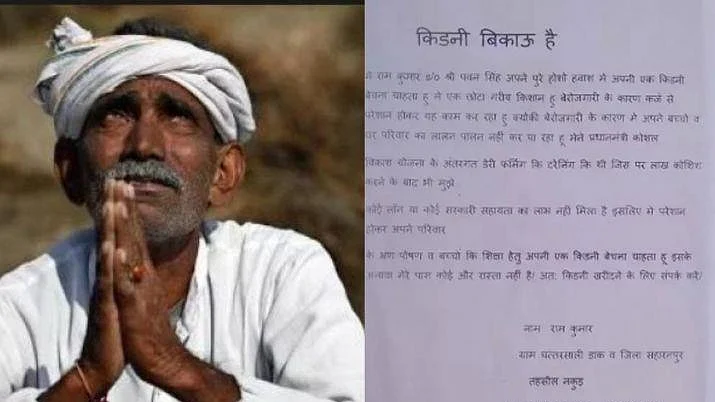 किडनी बिकाऊ है
राम कुमार s/o श्री पवन सिंह अपने पुरे होशो हवाश मे अपनी एक किडनी
बेचना चाहता हू मे एक छोटा गरीब किशान हू बेरोजगारी के कारण कर्ज से
परेशान होकर यह काम कर रहा हू क्योकी बेरोजगारी के कारण मे अपने बच्चो व
घर परिवार का लालन पालन नही कर पा रहा हू मेने प्रधानमंत्री कोशल
विकाश योजना के अंतरगत डेरी फर्निग कि टरेनिंग कि थी जिस पर लाख कोशिश
करने के बाद भी मुझे
कोई लॉन या कोई सरकारी सहायता का लाभ नही मिला है इसलिए मे परेशान
होकर अपने परिवार
के भण पोषण व बच्चो कि शिक्षा हेतु अपनी एक किडनी बेचना चाहता हू इसके
अलावा मेरे पास कोई और रास्ता नही है/ अत: किडनी खरीदने के लिए संपर्क करे/
नाम राम कुमार
ग्राम चत्तरसाली डाक व जिला सहारनपुर
तहसील नकुड